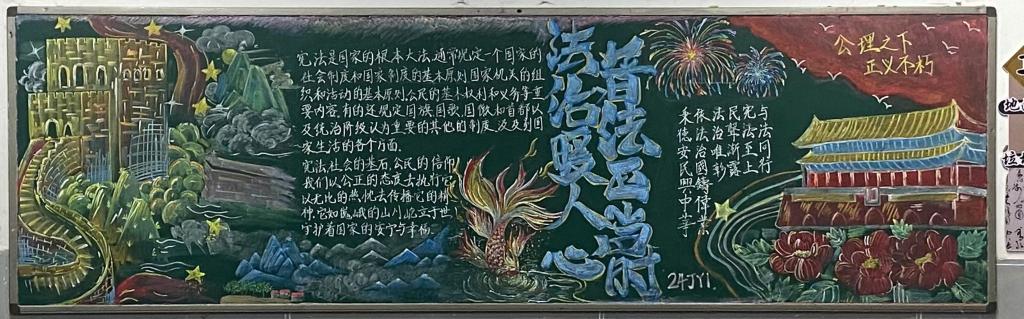 宪法是国家的根本大法,通常规定一个国家的
社会制度和国家制度的基本原则,国家机关的组
织和活动的基本原则,公民的基本权利和义务等重
要内容,有的还规定国旗国歌,国徽和首都以
及统治阶级认为重要的其他的制度,涉及到国
家生活的各个方面.
宪法,社会的基石,公民的信仰
我们以公正的态度去执行它
以无比的热忱去传播它的精
神,它如巍峨的山川屹立于世,
守护着国家的安宁与幸福.
普法正当时
法治照人心
公理之下
正义不朽
与法同行
宪法至上
民声渐露
法治唯彰
依法治國鑄偉業
秉德安民興中華
24JY1.